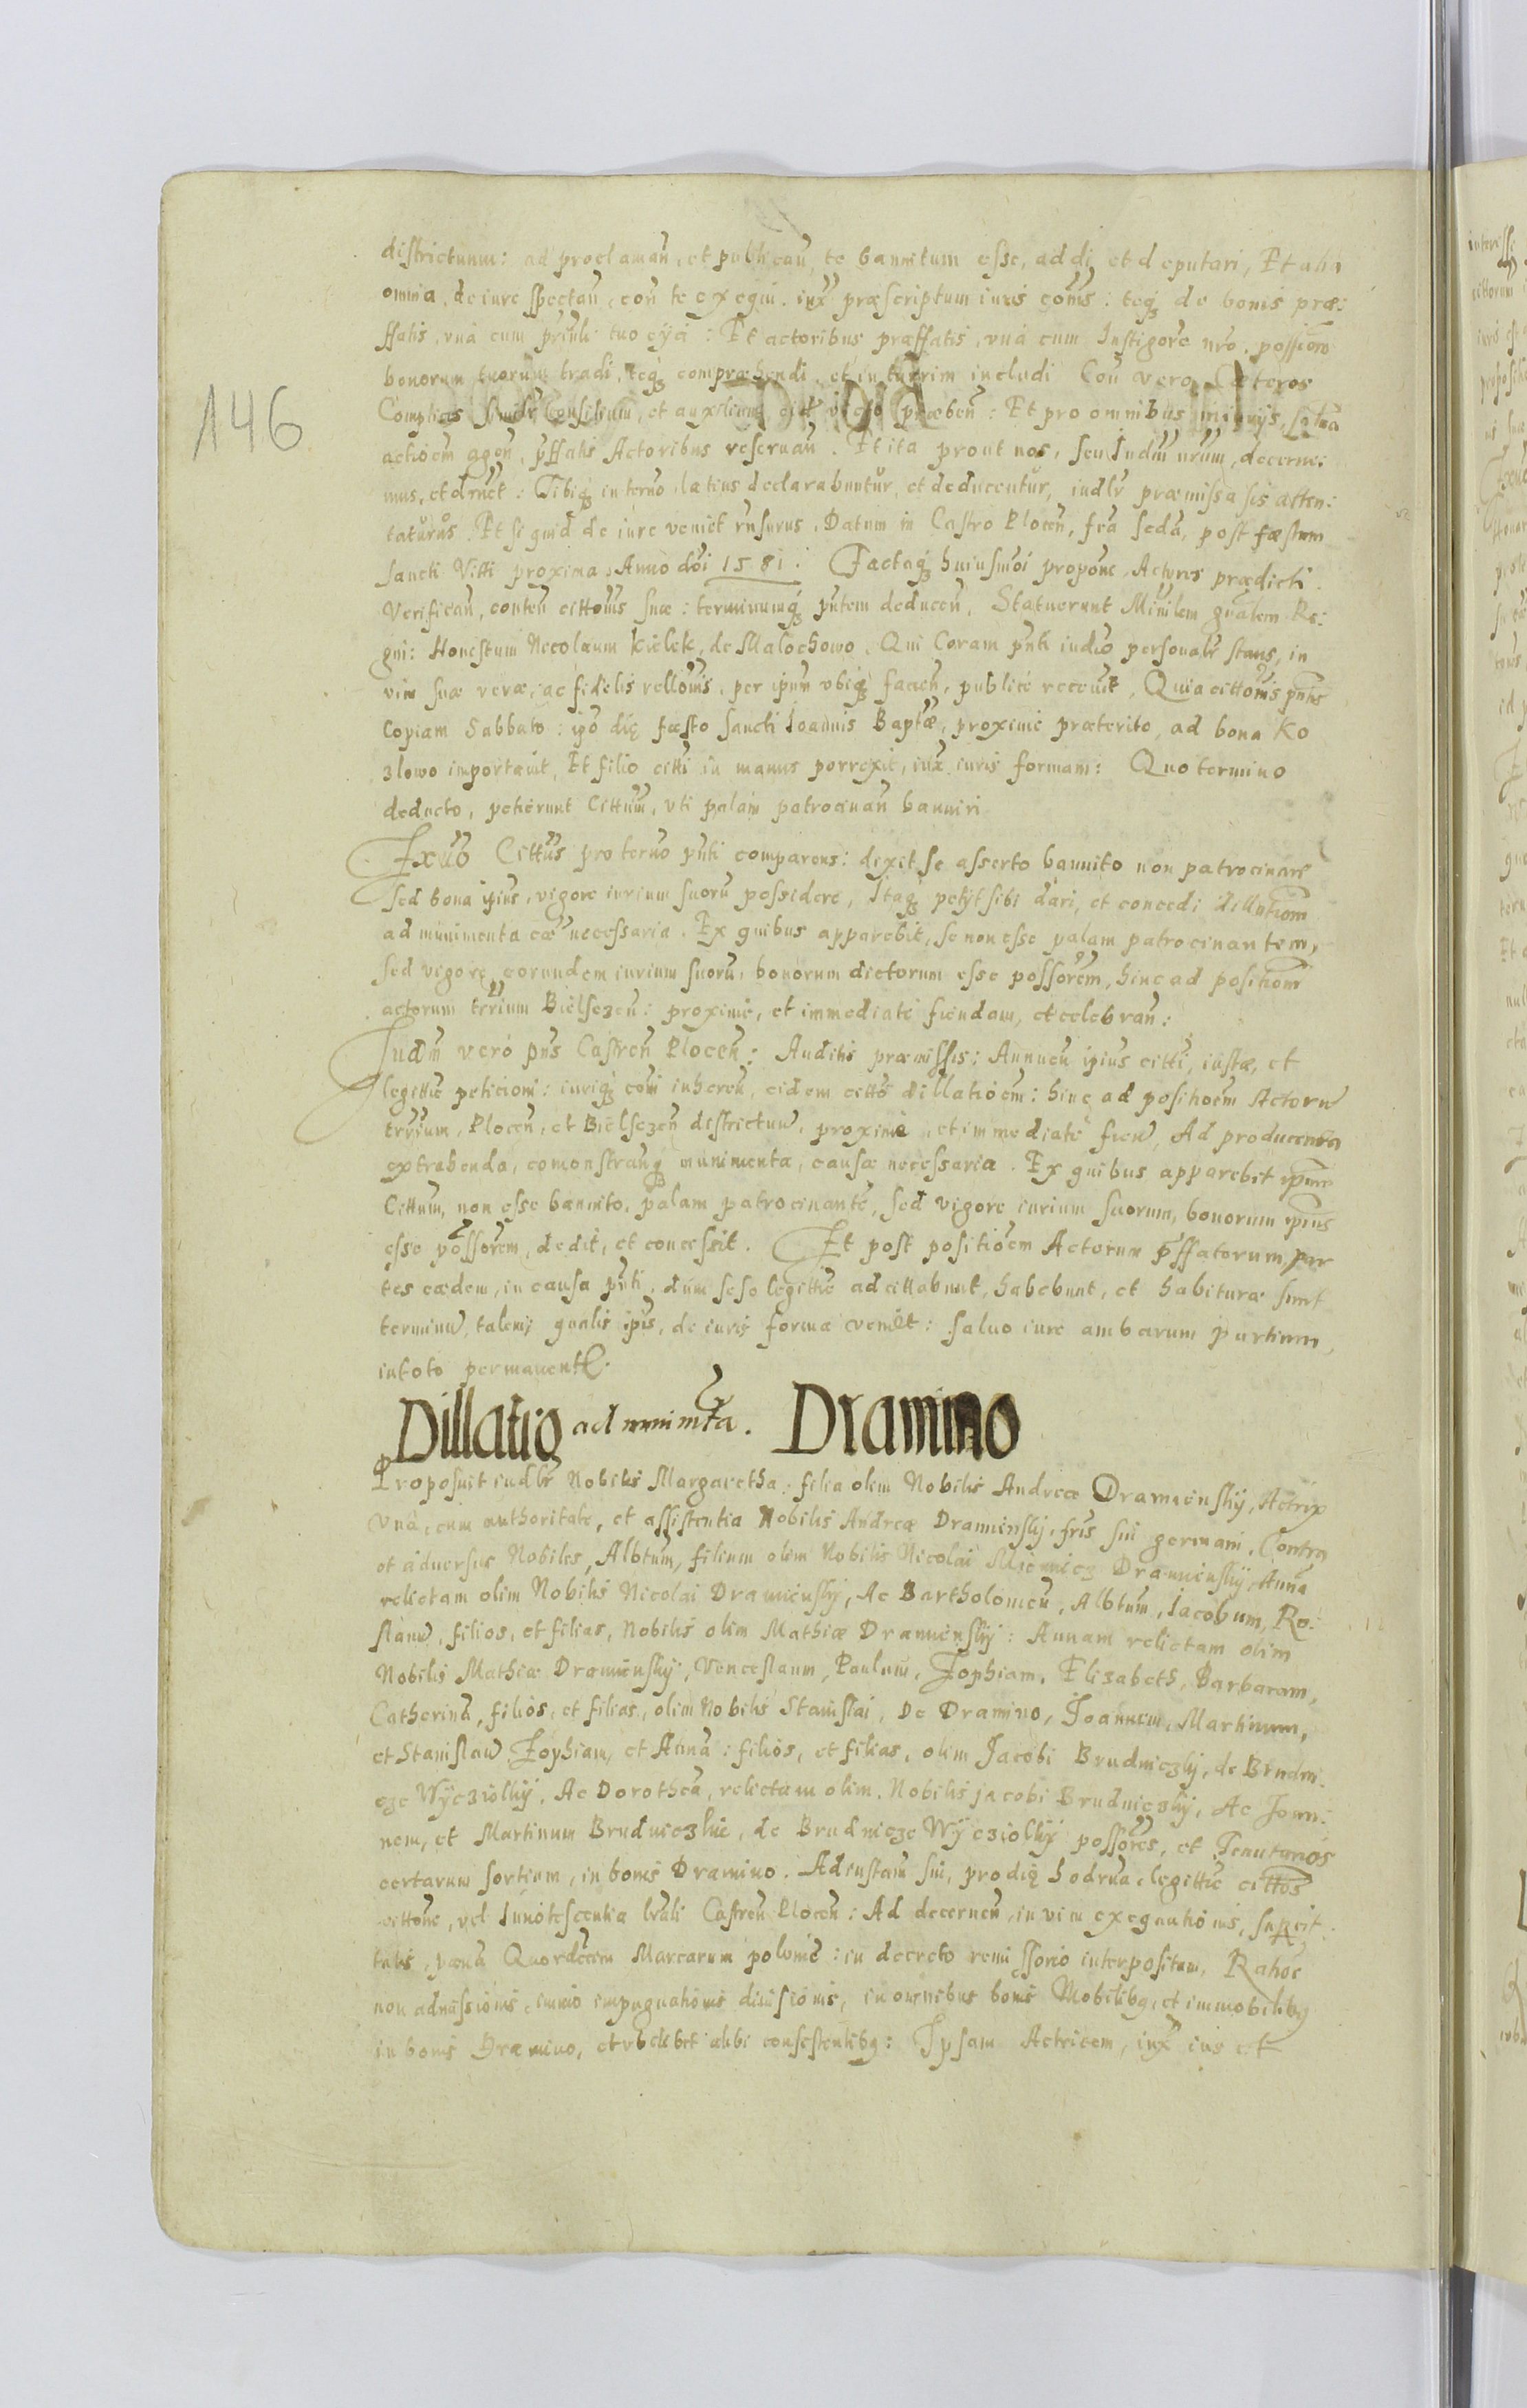 146
districtuum: ad proclaman, et publican, te bannitum esse, addi, et deputari, Et alia
omnia, de iure spectan, con te exequi. iux præscriptum iuris cõis: teq de bonis præ:
ffatis, vná cum prinli tuo eyci: Et actoribus præffatis, vná cum Instigore nro, possiom
bonorum tuorum tradi, teq compræhendi, et in turrim includi Con vero Cæteros
Complices simile Consilium, et auxilium præben: Et pro omnibus iniurijs, salua
actioem agen, pffatis Actoribus reseruan. Et ita prout nos, seu Iudm nrum, decerne:
mus, et dnet: Tibiq in terno latius declarabuntur, et deducentur, iudlr præmissa sis atten:
taturus. Et si quid de iure veniet rnsurus. Datum in Castro Plocen, fra seda, post fæstum
sancti Viti proxima, Anno doi 1581: Factaq huiusmoi propone, Actores prædicti.
Verifican, conten cittonis suæ: terminumq pntem deducen, Statuerunt Minilem gnalem Re:
gni: Honestum Nicolaum Kielek, de Malochowo, Qui Coram pnti iudio personalr stans, in
vim suæ veræ, ac fidelis rellonis, per ipum vbiq facien, publicé recouit, Quia cittonis pntis
Copiam Sabbato: ipo die fæsto sancti Ioannis Baptæ, proximé præterito, ad bona Ko
zlowo importauit, Et filio citti in manus porrexit, iux iuris formam: Quo termino
deducto, petierunt Cittum, vti palam patrocinan banniri
Exuo Cittus pro terno pnti comparens: dixit se asserto bannito non patrocinare
sed bona ipius, vigore iurium suoru possidere, Itaq petyt sibi dari, et concedi dillationem
ad munimenta cæ necessaria. Ex quibus apparebit, se non esse palam patrocinantem,
sed vigore eorundem iurium suoru, bonorum dictorum esse possorem, hinc ad positiom
actorum trrium Bielsczen: proximé, et immediaté fiendam, et celebran:
Iudm veró pns Castren Plocen: Auditis præmissis: Annuen ipius citti, iustæ, et
legittie peticioni: iuriq coi inheren, eidem citto dillatioem: hinc ad positioem Actoru
trrium, Plocen, et Bielsczen districtuu, proximé, et immediaté fien, Ad producenda
extrahenda, comonstranq munimenta, causæ necessaria. Ex quibus apparebit ipum
Cittum, non esse bannito, palam patrocinante, sed vigore iurium suorum, bonorum ipius
esse possorem, dedit, et concessit. Et post positioem Actorum pffatorum, par
tes eædem, in causa pnti, dum sese legittie adcittabunt, habebunt, et habituræ sunt
terminu, talem, qualis ipis, de iuris forma veniet: saluo iure ambarum partium,
in toto permanente.
Dillatio ad munimta. Dramino
Proposuit iudlr Nobilis Margaretha: filia olim Nobilis Andreæ Dramienskij, Actrix
vná, cum authoritate, et assistentia Nobilis Andreæ Dramienskj, fris sui germani, Contra
et aduersus Nobiles, Albtum, filium olim Nobilis Nicolai Dramienskij, Anna
relictam olim Nobilis Nicolai Dramienskij, Ac Bartholomeu, Albtum, Iacobum, Ro:
slanu, filios, et filias, Nobilis olim Mathiæ Dramienskij: Annam relictam olim
Nobilis Mathiæ Dramienskij, Venceslaum, Paulum, Zophiam, Elisabeth, Barbaram,
Catherina, filios, et filias, olim Nobilis Stanislai, De Dramino, Ioannem, Martinum,
et Stanislau, Zophiam, et Anna: filios, et filias, olim Iacobi Brudniczkj, de Brudni:
cze Wycziolkij, Ac Dorothea, relictam olim, Nobilis jacobi Brudniczkij, Ac Joan:
nem, et Martinum Brudniczkie, de Brudnicze Wycziolkij possores, et Tenutarios
certarum sortium, in bonis Dramino. Ad instam sui, pro die hodrna, legittie cittos
cittone, vel Innotescentia lrali Castren Plocen: Ad decernen, in vim exequutionis,
pæna Quordecem Marcarum polonie: in decreto remissorio interpositam, Ratioe
non admissionis, immo impugnationis diuisionis, in omnibus bonis Mobilibq, et immobilibq
in bonis Dramino, et vbilibet alibi consistentibq: Ipsam Actricem, iux ius et